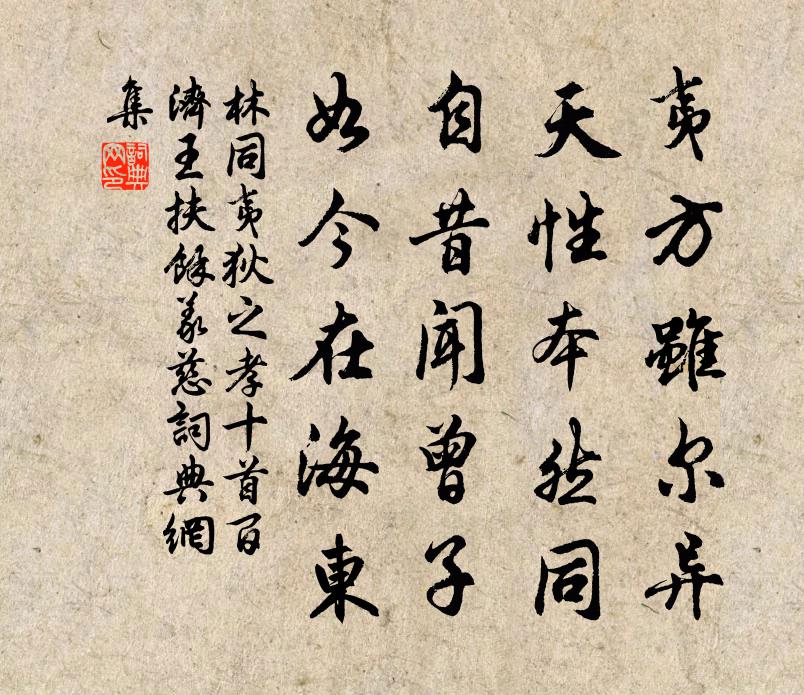 夷方雖尔异
天性本然同
自昔聞曾子
如今在海東
林同夷狄之孝十首百
濟王扶餘義慈詞典網
集
詞典網印